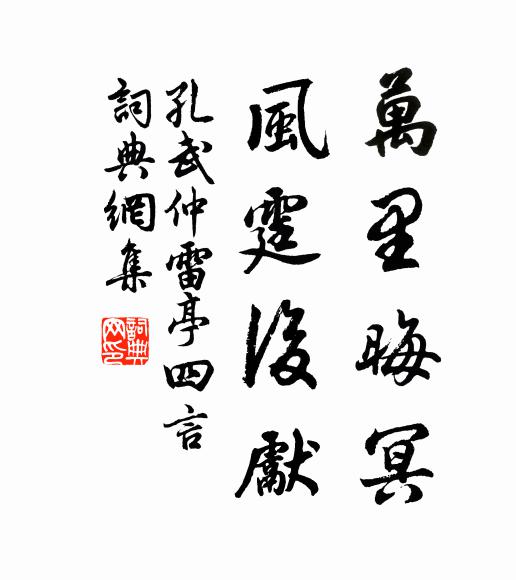 萬里晦冥
風霆復獻
孔武仲雷亭四言
詞典網集
詞典網印